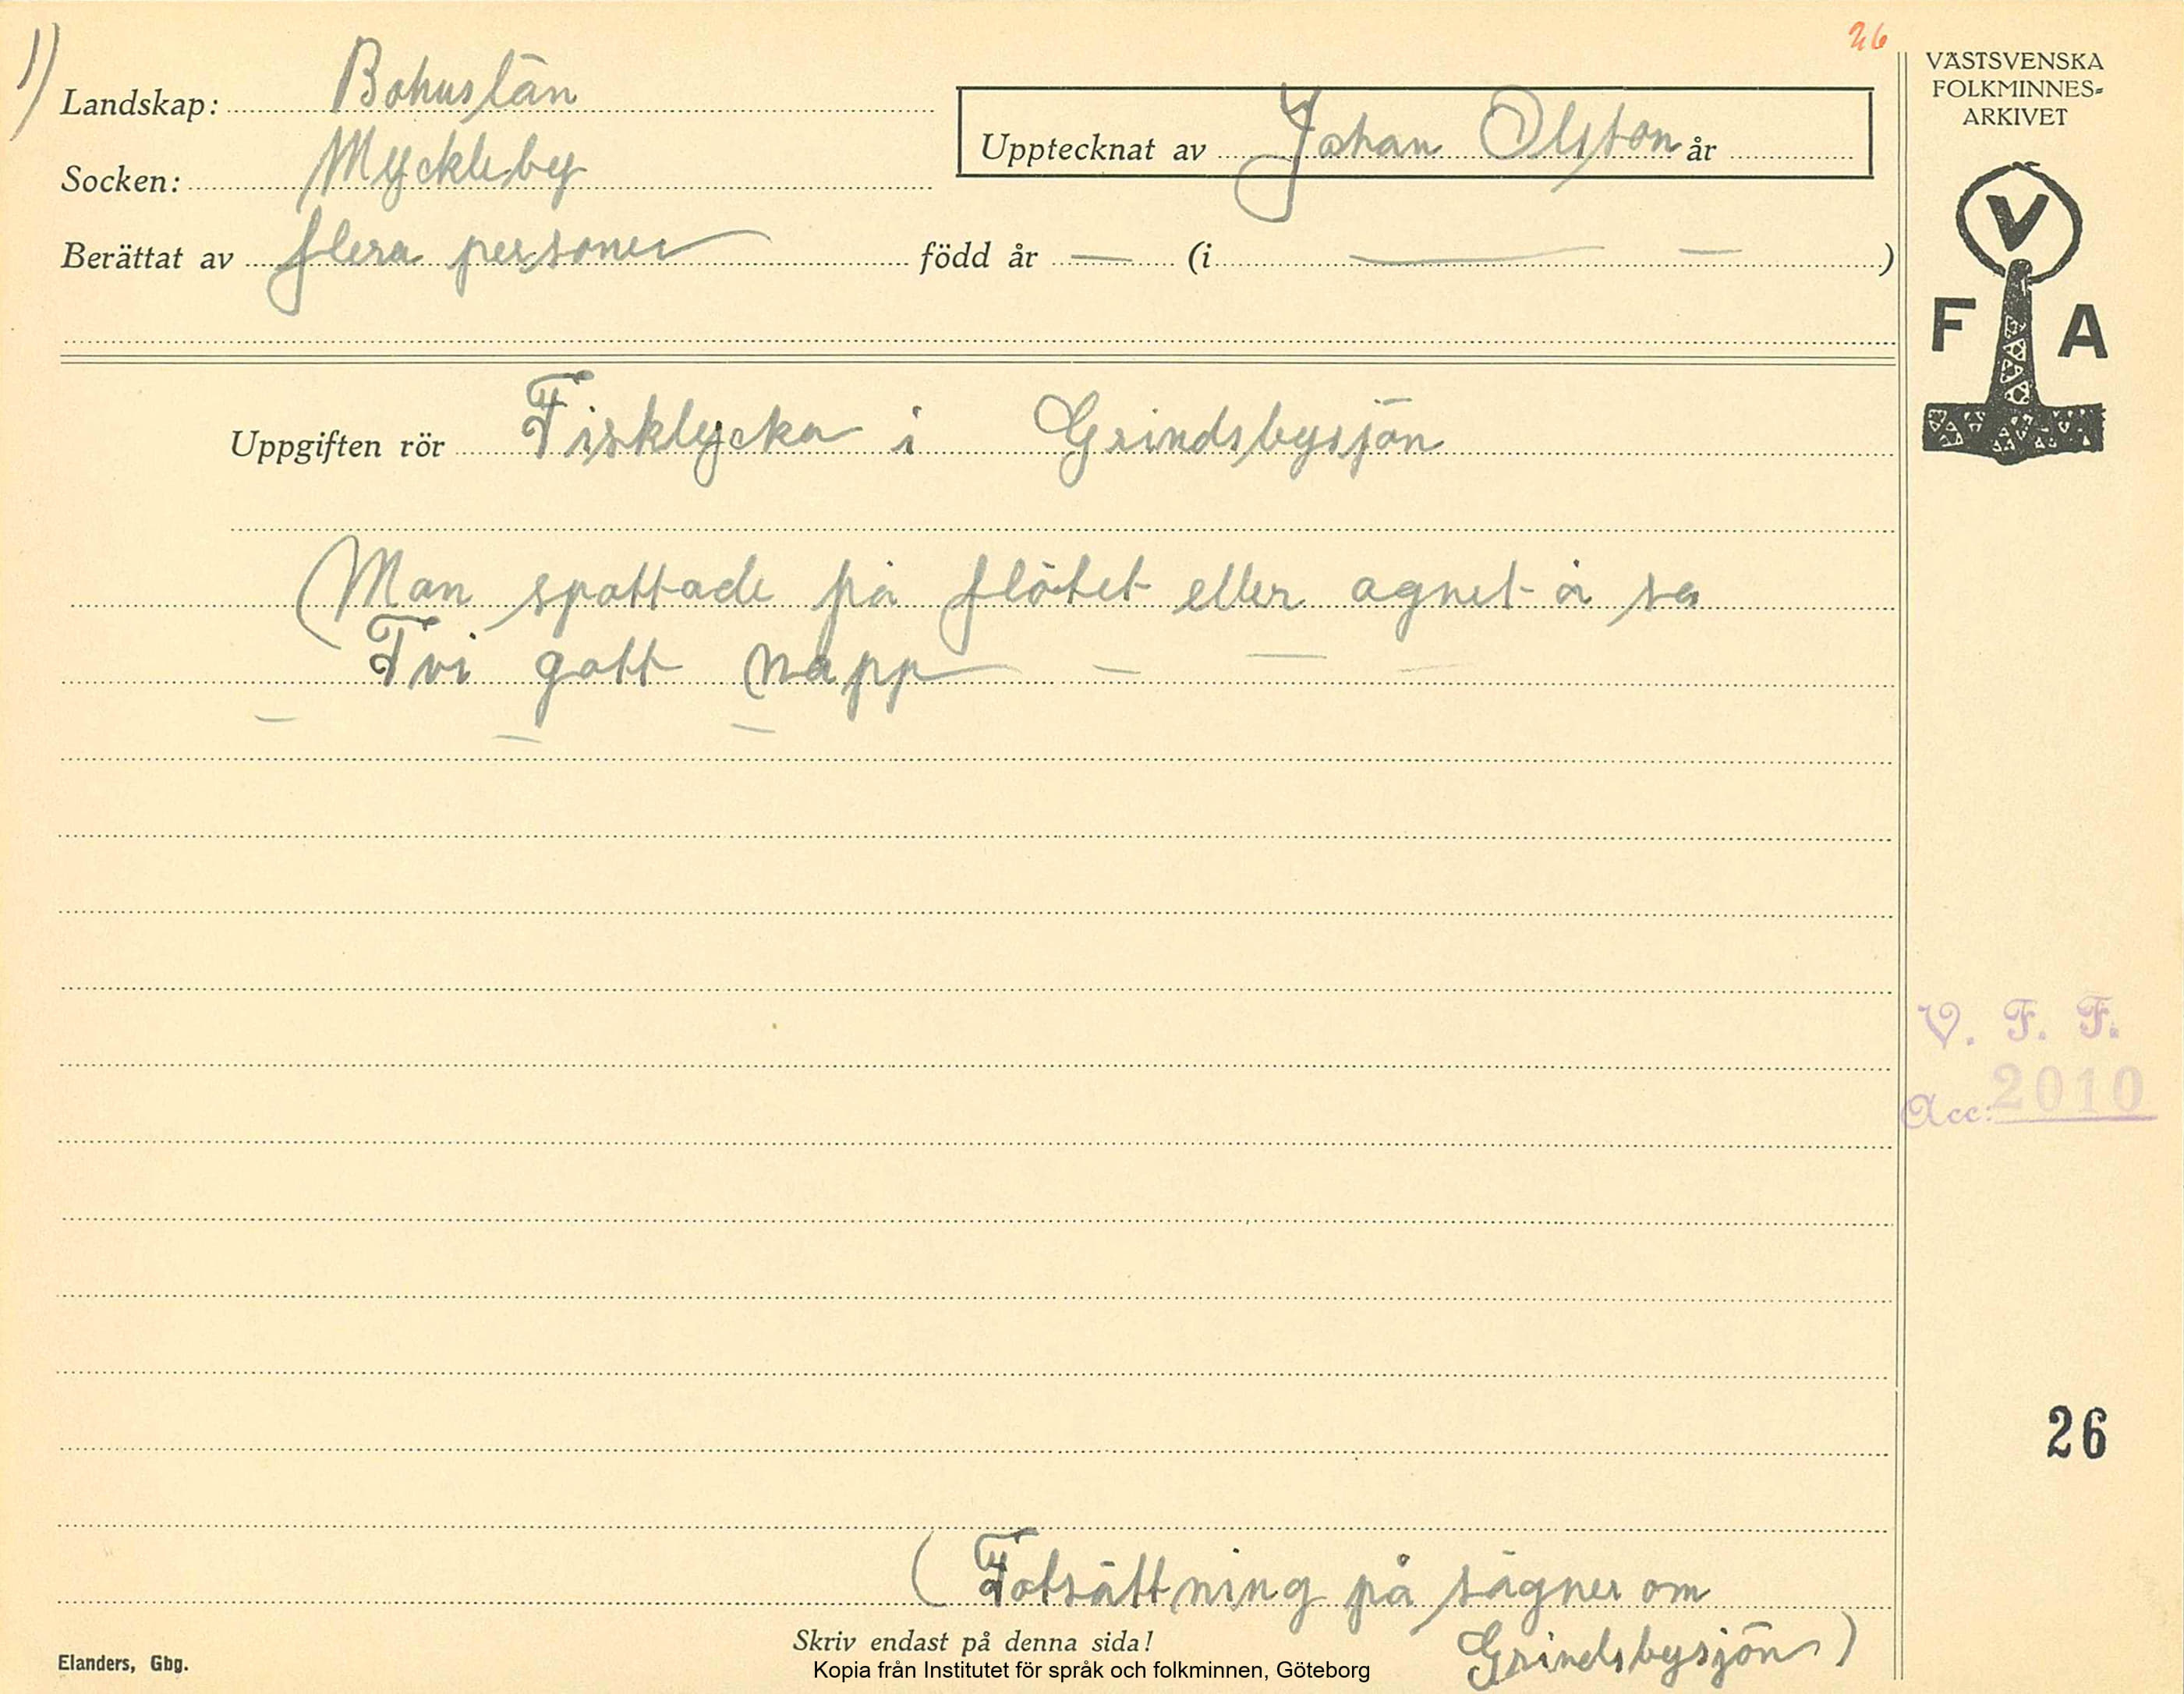 26
1)
Landskap: Bohuslän
Socken: Myckleby
Upptecknat av Johan Olsson år
Berättat av flera personer född år — (i — — )
Uppgiften rör Fisklycka i Grindsbysjön
(Man spottade på flötet eller agnet å sa
Tvi gott napp — — —
— — —
(Fotsättning på sägner om
Grindsbysjön)
Skriv endast på denna sida!
Elanders, Gbg.
Kopia från Institutet för språk och folkminnen, Göteborg
VÄSTSVENSKA
FOLKMINNES-
ARKIVET
V
F A
V. F. F.
Acc: 2010
26